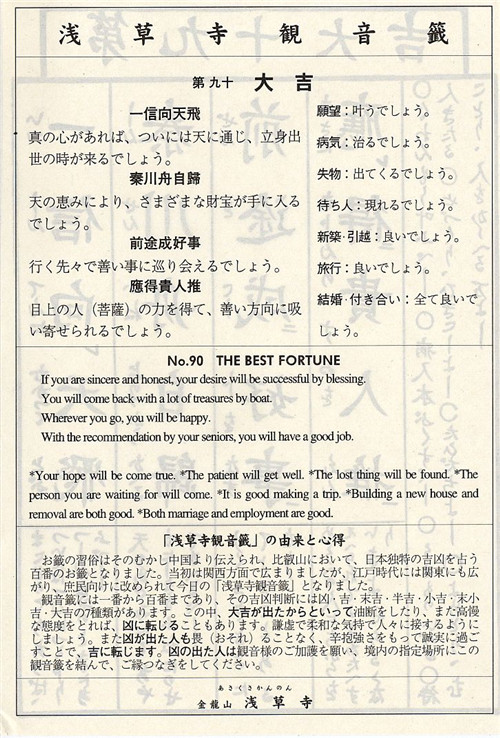 浅草寺観音籤
第九十 大吉
一信向天飛
真の心があれば、ついには天に通じ、立身出
世の時が来るでしょう。
秦川舟自歸
天の恵みにより、さまざまな財宝が手に入る
でしょう。
前途成好事
行く先々で善い事に巡り会えるでしょう。
應得貴人推
目上の人（菩薩）の力を得て、善い方向に吸
い寄せられるでしょう。
願望：叶うでしょう。
病気：治るでしょう。
失物：出てくるでしょう。
待ち人：現れるでしょう。
新築·引越：良いでしょう。
旅行：良いでしょう。
結婚·付き合い：全て良いで
しょう。
No.90 THE BEST FORTUNE
If you are sincere and honest, your desire will be successful by blessing.
You will come back with a lot of treasures by boat.
Wherever you go, you will be happy.
With the recommendation by your seniors, you will have a good job.
*Your hope will be come true. *The patient will get well. *The lost thing will be found. *The
person you are waiting for will come. *It is good making a trip. *Building a new house and
removal are both good. *Both marriage and employment are good.
「浅草寺観音籤」の由来と心得
お籤の習俗はそのむかし中国より伝えられ、比叡山において、日本独特の吉凶を占う
百番のお籤となりました。当初は関西方面で広まりましたが、江戸時代には関東にも広
がり、庶民向けに改められて今日の「浅草寺観音籤」となりました。
観音籤には一番から百番まであり、その吉凶判断には凶·吉·末吉·半吉·小吉·末小
吉·大吉の7種類があります。この中、大吉が出たからといって油断をしたり、また高慢
な態度をとれば、凶に転じることもあります。謙虚で柔和な気持で人々に接するように
しましょう。また凶が出た人も畏（おそれ）ることなく、辛抱強さをもって誠実に過ご
すことで、吉に転じます。凶の出た人は観音様のご加護を願い、境内の指定場所にこの
観音籤を結んで、ご縁つなぎをしてください。
あさくさかんのん
金龍山 浅草寺